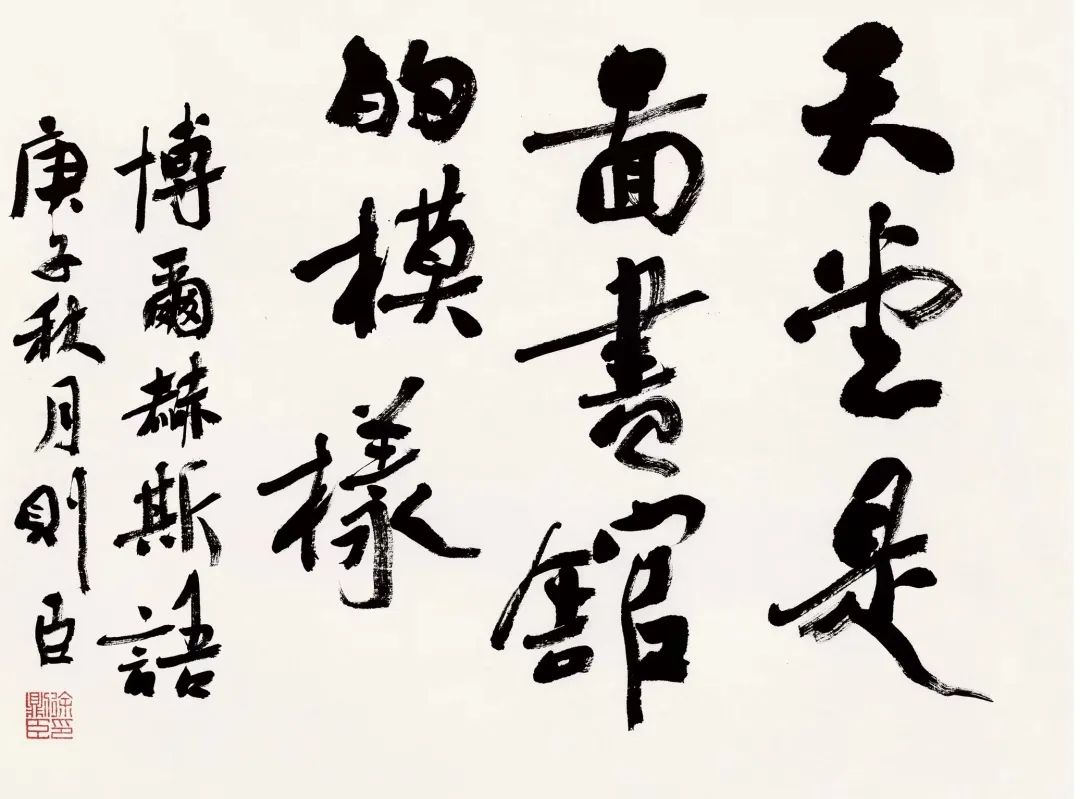 天堂是
圖書舘
的模樣
博爾赫斯語
庚子秋月則臣
徐印
則臣